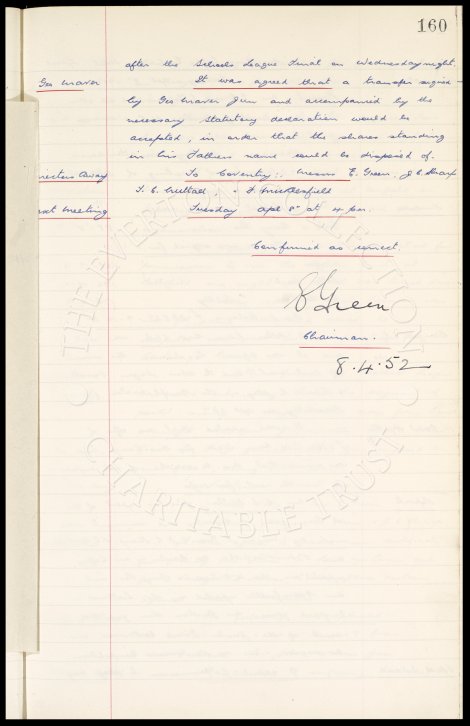 160
after the Schools League Final on Wednesday night.
Geo Mahon It was agreed that a transfer signed
by Geo Mahon Junr and accompanied by the
necessary Statutory declaration would be
accepted, in order that the shares standing
in his Fathers name could be disposed of.
rectors Away To Coventry:, Messrs E. Green, J C Sharp
T. C. Nuttall. F. Micklesfield
ext Meeting Tuesday Apl 8th at 4 p.m.
Confirmed as correct
E Green
Chairman.
8.4.52
THE EVERTON COLLECTION
CHARITABLE TRUST